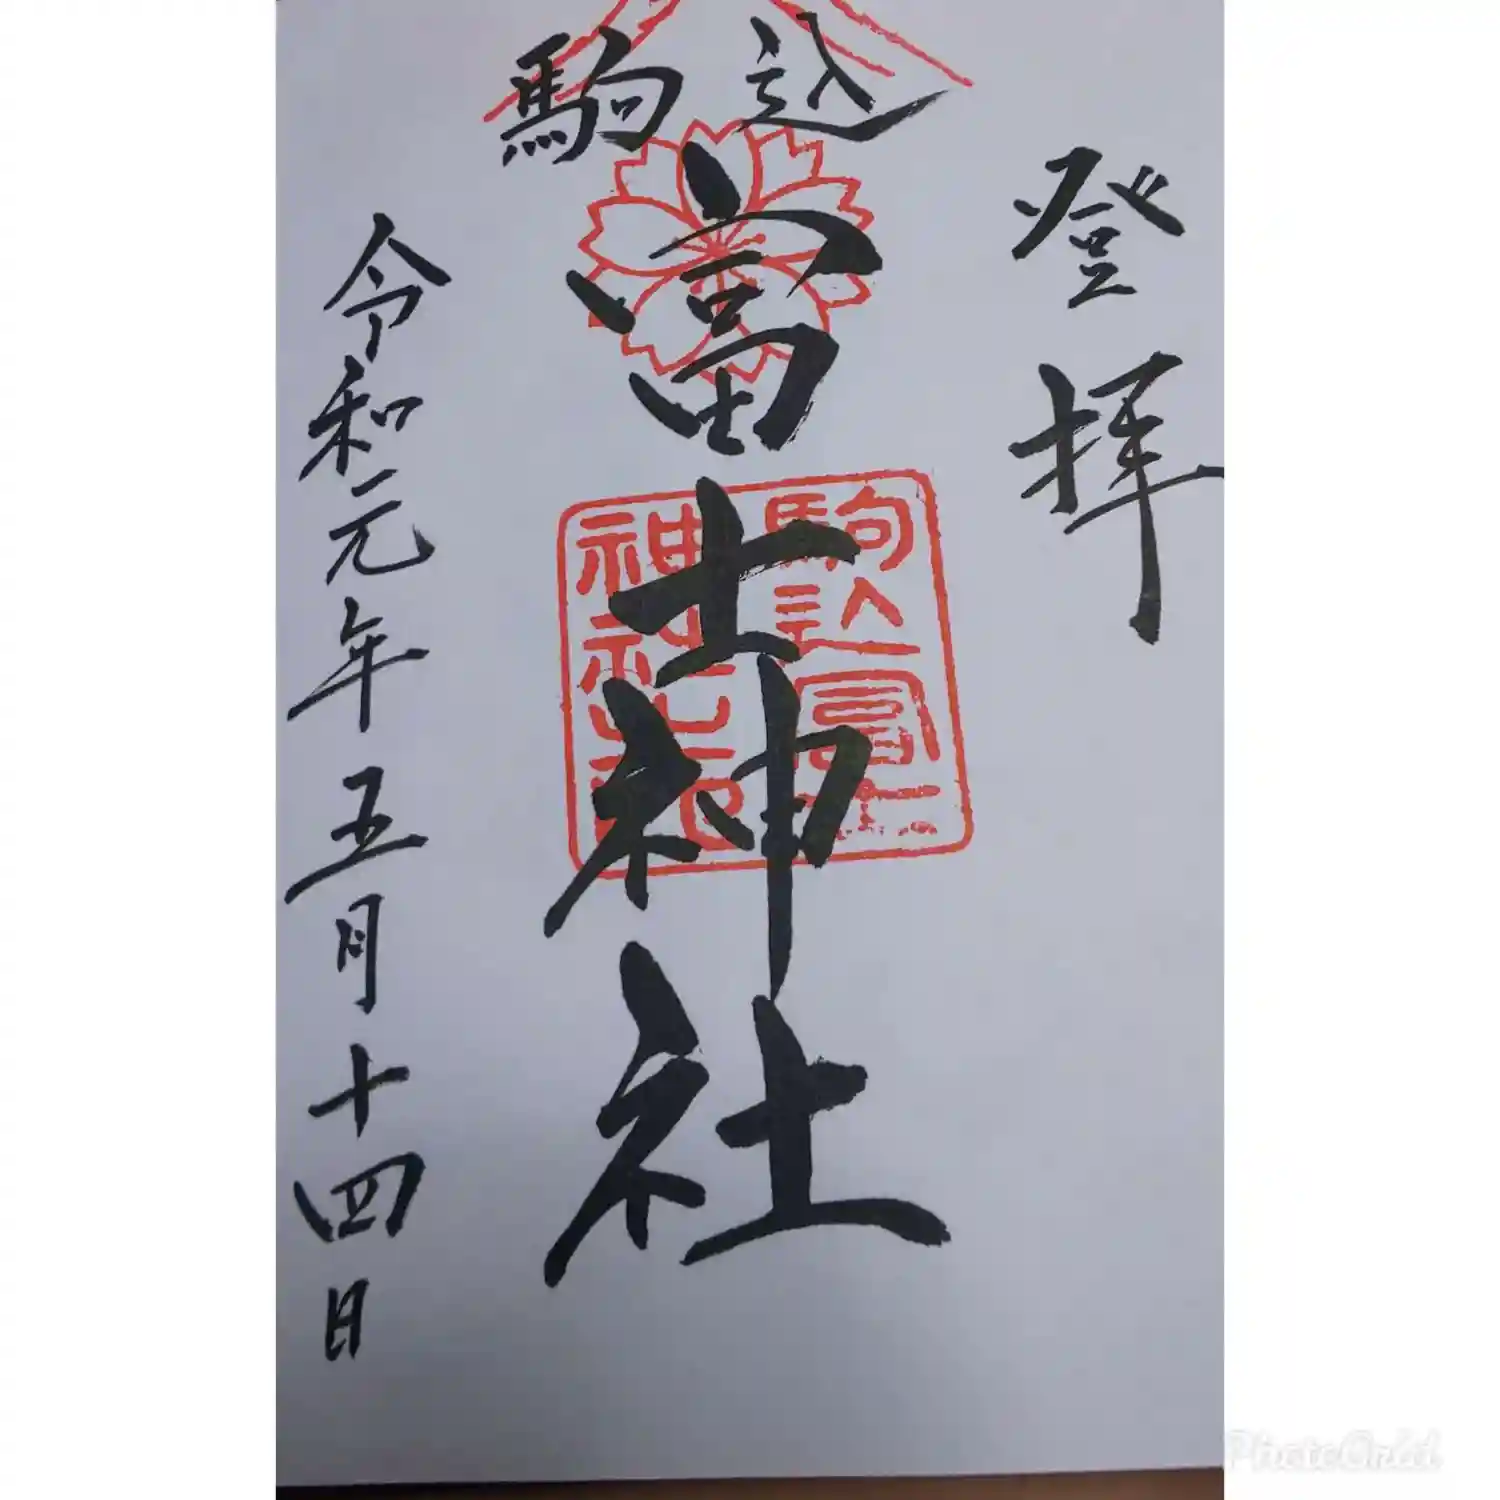 登拝
駒込
富士神社
駒込富士
神社之
令和元年五月十四日
PhotoGrid